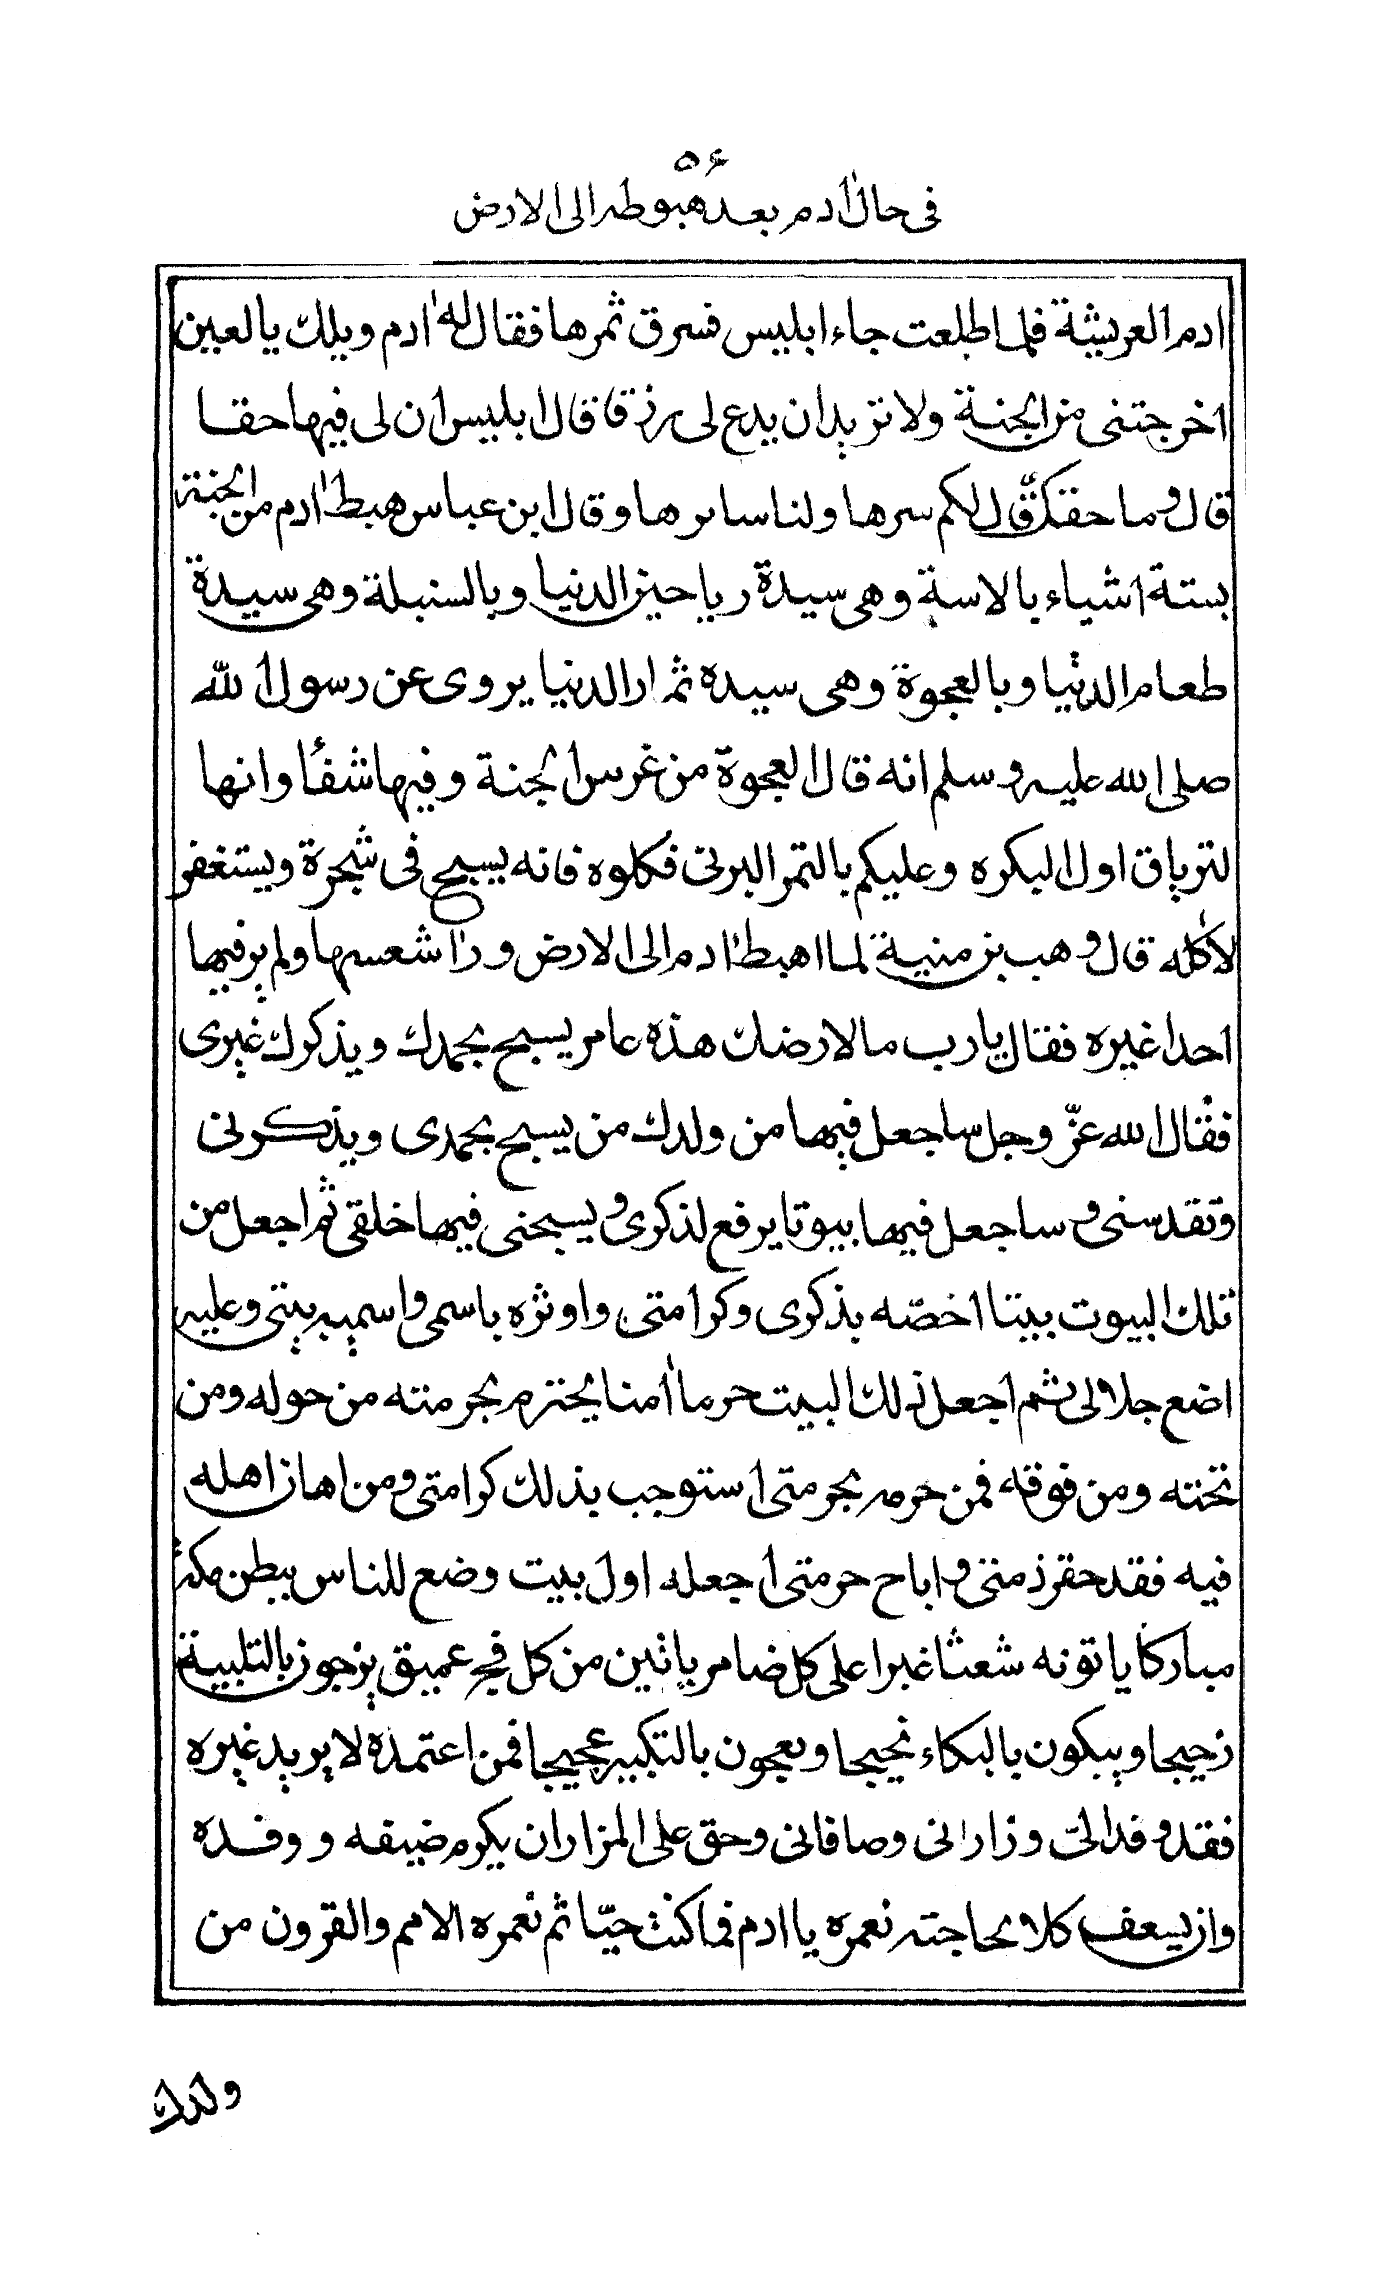 ٥۶
فى حال ادم بعد هبوطه الى الارض
ادم العريشة فلما اطلعت جاء ابليس فسرق ثمرها فقال له ادم ويلك يا لعين
اخرجتنى من الجنة ولا تريد ان يدع لى رزقا قال ابليس ان لى فيها حقا
قال وما حقك قال لكم سرها ولنا سايرها وقال ابن عباس هبط ادم من الجنة
بستة اشياء بالاسة وهى سيدة رياحين الدنيا وبالسنبلة وهى سيدة
طعام الدنيا وبالعجوة وهى سيدة ثمار الدنيا يروى عن رسول الله
صلى الله عليه وسلم انه قال العجوة من غرس الجنة وفيها شفأ وانها
لترياق اول البكره وعليكم بالتمر البرنى فكلوه فانه يسبح فى شجرة ويستغفر
لأكله قال وهب بن منية لما اهبط ادم الى الارض و راا شعسها ولم ير فيها
احدا غيره فقال يارب ما لارضك هذه عامر يسبح بحمدك ويذكرك غيرى
فقال الله عزّ وجل ساجعل فيها من ولدك من يسبح بحمدى ويذكرنى
وتقدسنى وساجعل فيها بيوتا يرفع لذكرى ويسبحنى فيها خلقى ثم اجعل من
تلك البيوت بيتا اخصّه بذكرى وكرامتى واوثره باسمى واسميه بيتى وعليه
اضع جلالى ثم اجعل ذلك البيت حرما أمنا يحترم بحرمته من حوله ومن
تحته ومن فوقه فمن حرمه بحرمتى استوجب بذلك كرامتى ومن اهان اهله
فيه فقد حقر ذمتى واباح حرمتى اجعله اول بيت وضع للناس ببطن مكة
مباركا ياتونه شعثا غبرا على كل ضامر ياتين من كل فج عميق يزجون بالتلبية
زجيجا ويبكون بالبكاء نحيبا ويعجون بالتكبير عجيجا فمن اعتمده لا يريد غيره
فقد وفد الىّ وزارانى وصافانى وحق على المزار ان يكرم ضيفه ووفده
وان يسعف كلا بحاجته نعمره يا ادم فما كنت حيّا ثم نعمره الامم والقرون من
ولدك